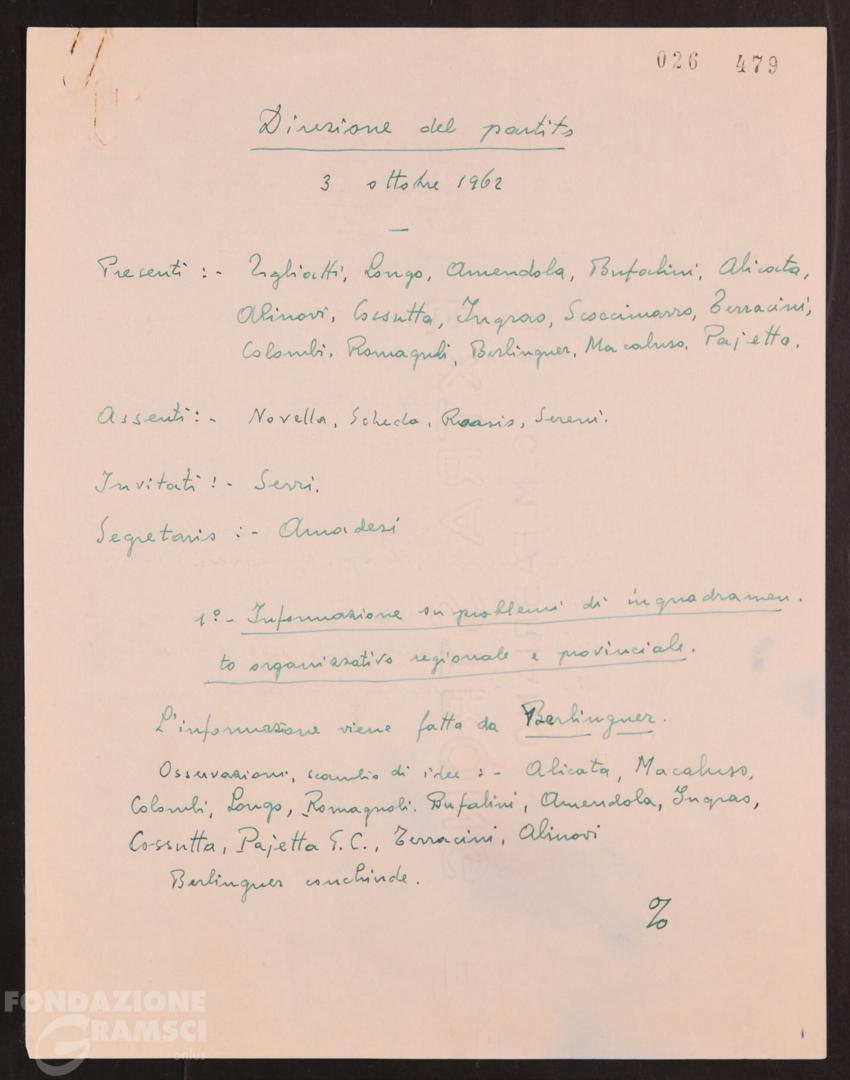 026 479
Direzione del partito
3 ottobre 1962
Presenti :- Togliatti, Longo, Amendola, Bufalini, Alicata,
Alinovi, Cossutta, Ingrao, Scoccimarro, Terracini,
Colombi, Romagnoli, Berlinguer, Macaluso, Pajetta.
Assenti :- Novella, Scheda, Roasio, Sereni.
Invitati :- Serri.
Segretario :- Amadesi
1º- Informazione su problemi di inquadramen-
to organizzativo regionale e provinciale.
L'informazione viene fatta da Berlinguer.
Osservazioni, scambio di idee :- Alicata, Macaluso,
Colombi, Longo, Romagnoli. Bufalini, Amendola, Ingrao,
Cossutta, Pajetta G.C., Terracini, Alinovi
Berlinguer conchiude.
%
FONDAZIONE
GRAMSCI
onlus